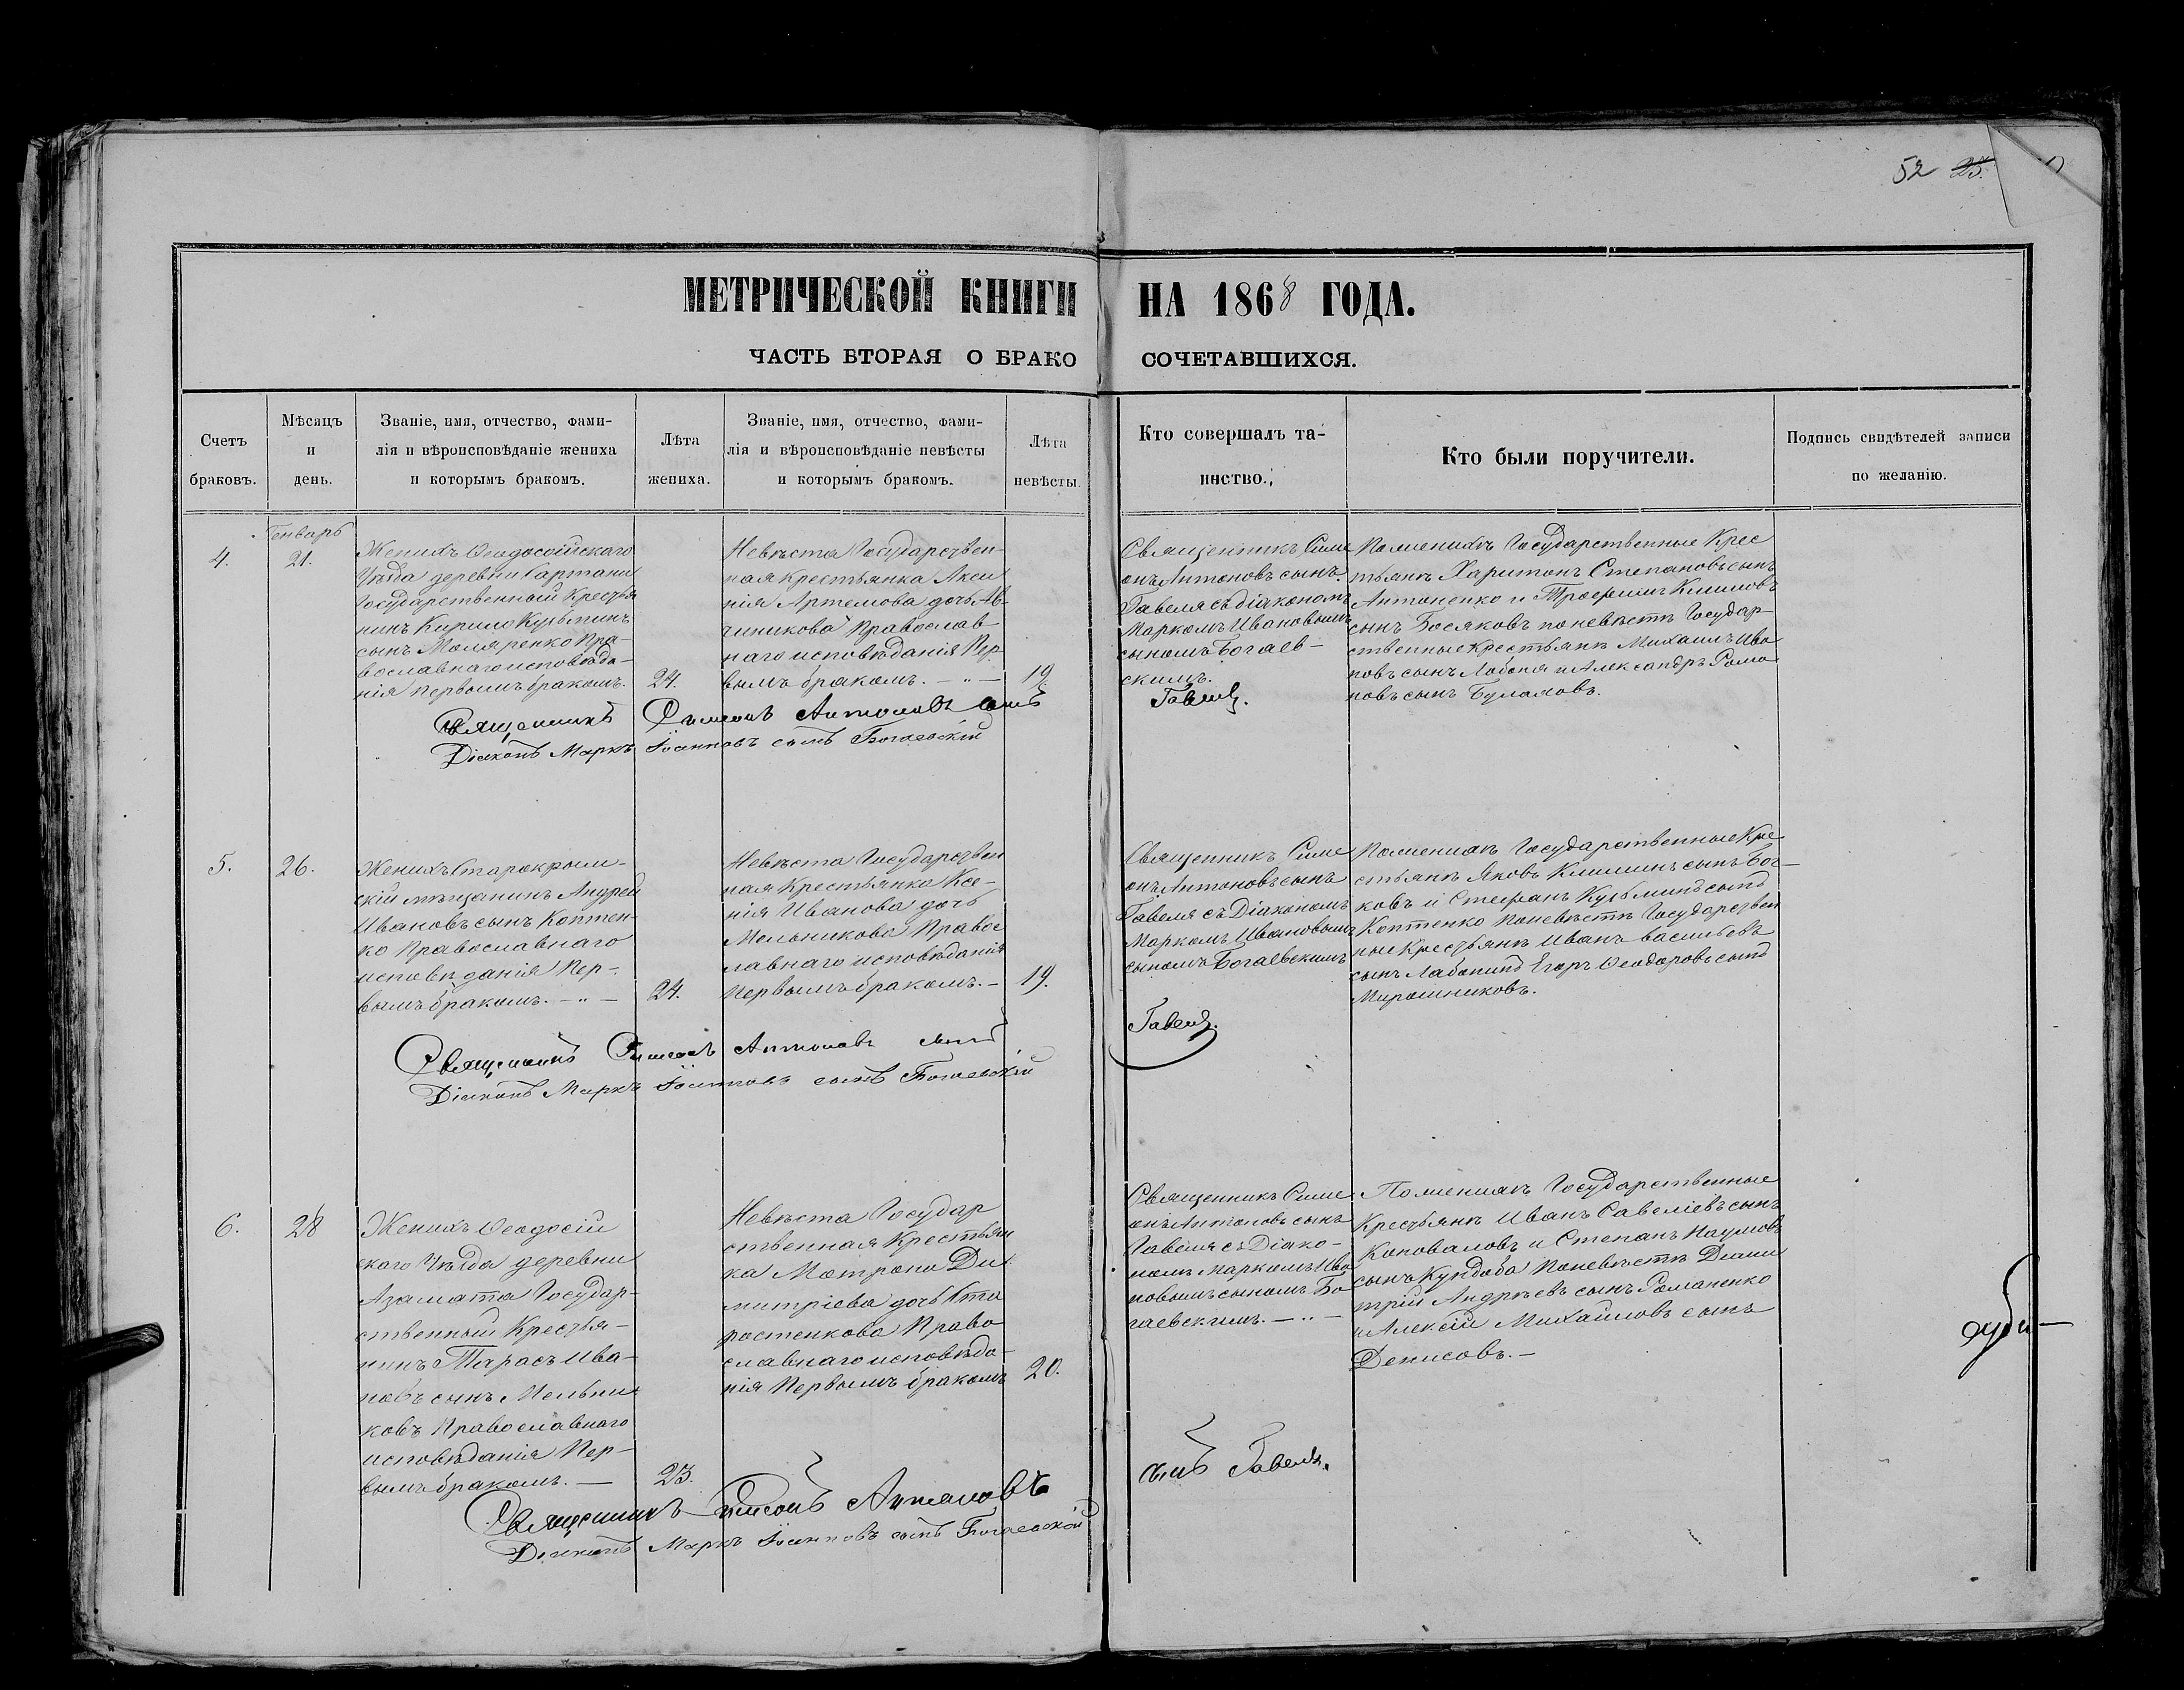 52 25.
МЕТРИЧЕСКОЙ КНИГИ НА 1868 ГОДА.
ЧАСТЬ ВТОРАЯ О БРАКО СОЧЕТАВШИХСЯ.
Счетъ
браковъ.
Мѣсяцъ
и
день.
Званіе, имя, отчество, фами-
лія и вѣроисповѣданіе жениха
и которымъ бракомъ.
Лѣта
жениха.
Званіе, имя, отчество, фами-
лія и вѣроисповѣданіе невѣсты
и которымъ бракомъ.
Лѣта
невѣсты.
Кто совершалъ та-
инство.
Кто были поручители.
Подпись свидѣтелей записи
по желанію.
4.
Генварь
21.
Женихъ Ѳеодосійскаго
Уѣзда деревни Сартана
Государственный Крестья
нинъ Кирило Кузьминъ
сынъ Моляренко Пра-
вославнаго исповѣда-
нія первымъ бракомъ.
24.
Невѣста Государствен-
ная крестьянка Акси
нія Артемова дочь Ав-
чиникова Православ
наго исповѣданія Пер-
вымъ бракомъ.
19.
Священникъ Симе
онъ Антоновъ сынъ
Гавеля съ діакономъ
Маркомъ Ивановымъ
сыномъ Богаев-
скимъ.
Гавеля.
По женихѣ Государственные Крес
тьяне Харитонъ Степановъ сынъ
Антоненко и Трофимъ Климовъ
сынъ Босяковъ по невѣстѣ Государ-
ственные крестьяне Михаилъ Ива
новъ сынъ и Александръ Рома
новъ сынъ
Священникъ Симеонъ Антоновъ сынъ
Діаконъ Маркъ Іоанновъ сынъ Богаевскій
5.
26.
Женихъ Старокрым-
скій мѣщанинъ Андрей
Ивановъ сынъ Коптен-
ко Православнаго
исповѣданія Пер-
вымъ бракомъ.
24.
Невѣста Государствен
ная Крестьянка Ксе-
нія Иванова дочь
Мельникова Правос
лавнаго исповѣданія
первымъ бракомъ.
19.
Священникъ Симе
онъ Антоновъ сынъ
Гавеля съ Діакономъ
Маркомъ Ивановымъ
сыномъ Богаевскимъ
Гавеля.
По женихѣ Государственные Кре
стьяне Яковъ сынъ Бог-
ковъ и Стефанъ Кузьминъ сынъ
Коптенко По невѣстѣ Государствен
ные Крестьяне Иванъ Васильевъ
сынъ Егоръ Ѳеодоровъ сынъ
Мирошниковъ.
Священникъ Симеонъ Антоновъ сынъ
Діаконъ Маркъ Іоанновъ сынъ Богаевскій
6.
28
Женихъ Ѳеодосій
скаго Уѣзда деревни
Азамата Государ-
ственный Крестья-
нинъ Тарасъ Ива-
новъ сынъ Мельни
ковъ Православнаго
исповѣданія Пер-
вымъ бракомъ.
23.
Невѣста Государ
ственная Крестьян
ка Матрона Ди
митріева дочь
Право
славнаго исповѣда-
нія Первымъ бракомъ
20.
Священникъ Симе
онъ Антоновъ сынъ
Гавеля съ Діако-
номъ Маркомъ Ива
новымъ сыномъ Бо
гаевскимъ.
По женихѣ Государственные
Крестьяне Иванъ Савеліевъ сынъ
Коноваловъ и Степанъ Наумовъ
сынъ По невѣстѣ Дими
трій Андреевъ сынъ Романенко
и Алексій Михайловъ сынъ
Денисовъ.
Священникъ Симеонъ Антоновъ сынъ Гавеля.
Діаконъ Маркъ Іоанновъ сынъ Богаевскій